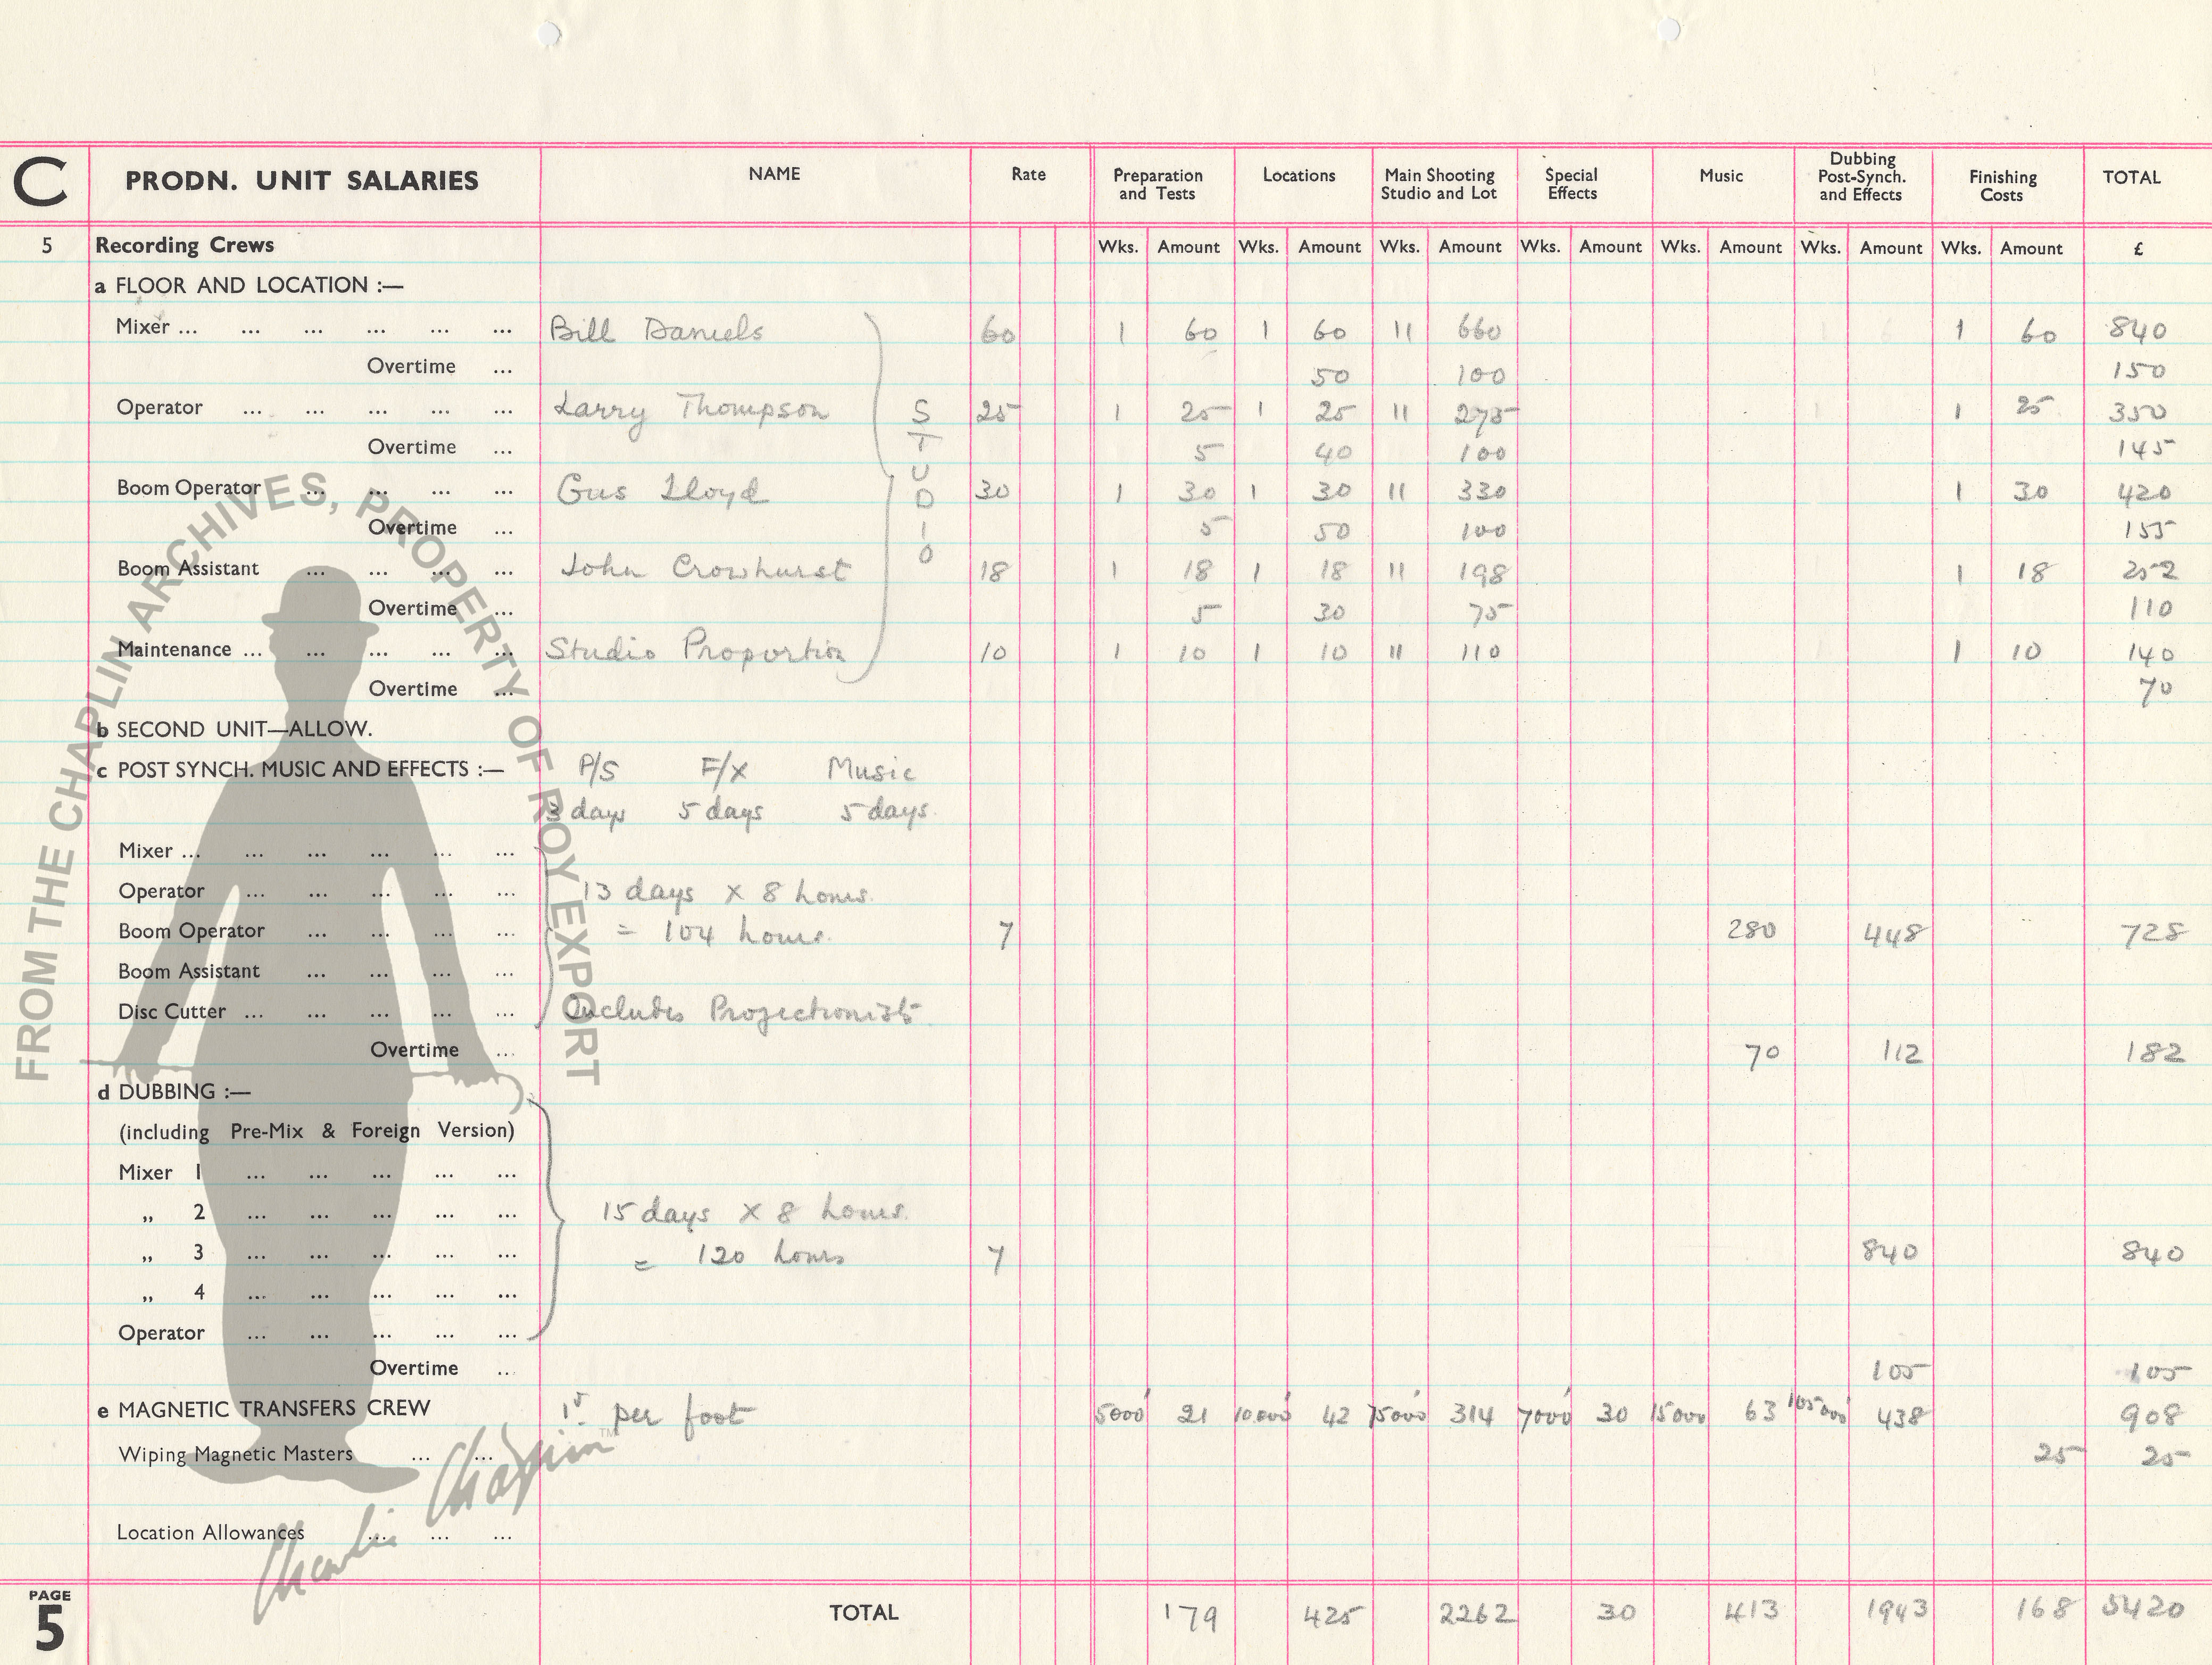 C PRODN. UNIT SALARIES NAME Rate Preparation and Tests Locations Main Shooting Studio and Lot Special Effects Music Dubbing Post-Synch. and Effects Finishing Costs TOTAL
5 Recording Crews Wks. Amount Wks. Amount Wks. Amount Wks. Amount Wks. Amount Wks. Amount Wks. Amount £
a FLOOR AND LOCATION :—
Mixer ... ... ... ... ... ... Bill Daniels 60 1 60 1 60 11 660 1 60 840
Overtime ... 50 100 150
Operator ... ... ... ... ... Larry Thompson 25 1 25 1 25 11 275 1 25 350
STUDIO
Overtime ... 5 40 100 145
Boom Operator ... ... ... ... Gus Lloyd 30 1 30 1 30 11 330 1 30 420
Overtime ... 5 50 100 155
Boom Assistant ... ... ... ... John Crowhurst 18 1 18 1 18 11 198 1 18 252
Overtime ... 5 30 75 110
Maintenance ... ... ... ... ... Studio Proportion 10 1 10 1 10 11 110 1 10 140
Overtime ... 70
b SECOND UNIT—ALLOW.
c POST SYNCH. MUSIC AND EFFECTS :— P/S F/X Music
3 days 5 days 5 days.
Mixer ... ... ... ... ... ...
Operator ... ... ... ... ... 13 days x 8 hours.
Boom Operator ... ... ... ... = 104 hours. 7 280 448 728
Boom Assistant ... ... ... ...
Disc Cutter ... ... ... ... ... Includes Projectionists
Overtime ... 70 112 182
d DUBBING :—
(including Pre-Mix & Foreign Version)
Mixer 1 ... ... ... ... ...
„ 2 ... ... ... ... ... 15 days x 8 hours.
„ 3 ... ... ... ... ... = 120 hours 7 840 840
„ 4 ... ... ... ... ...
Operator ... ... ... ... ...
Overtime ... 105 105
e MAGNETIC TRANSFERS CREW per foot 5000' 21 10,000' 42 75000' 314 7000' 30 15000 63 105000' 438 908
Wiping Magnetic Masters ... ... 25 25
Location Allowances ... ... ...
PAGE 5 TOTAL 179 425 2262 30 413 1943 168 5420
FROM THE CHAPLIN ARCHIVES, PROPERTY OF ROY EXPORT
Charlie Chaplin ™